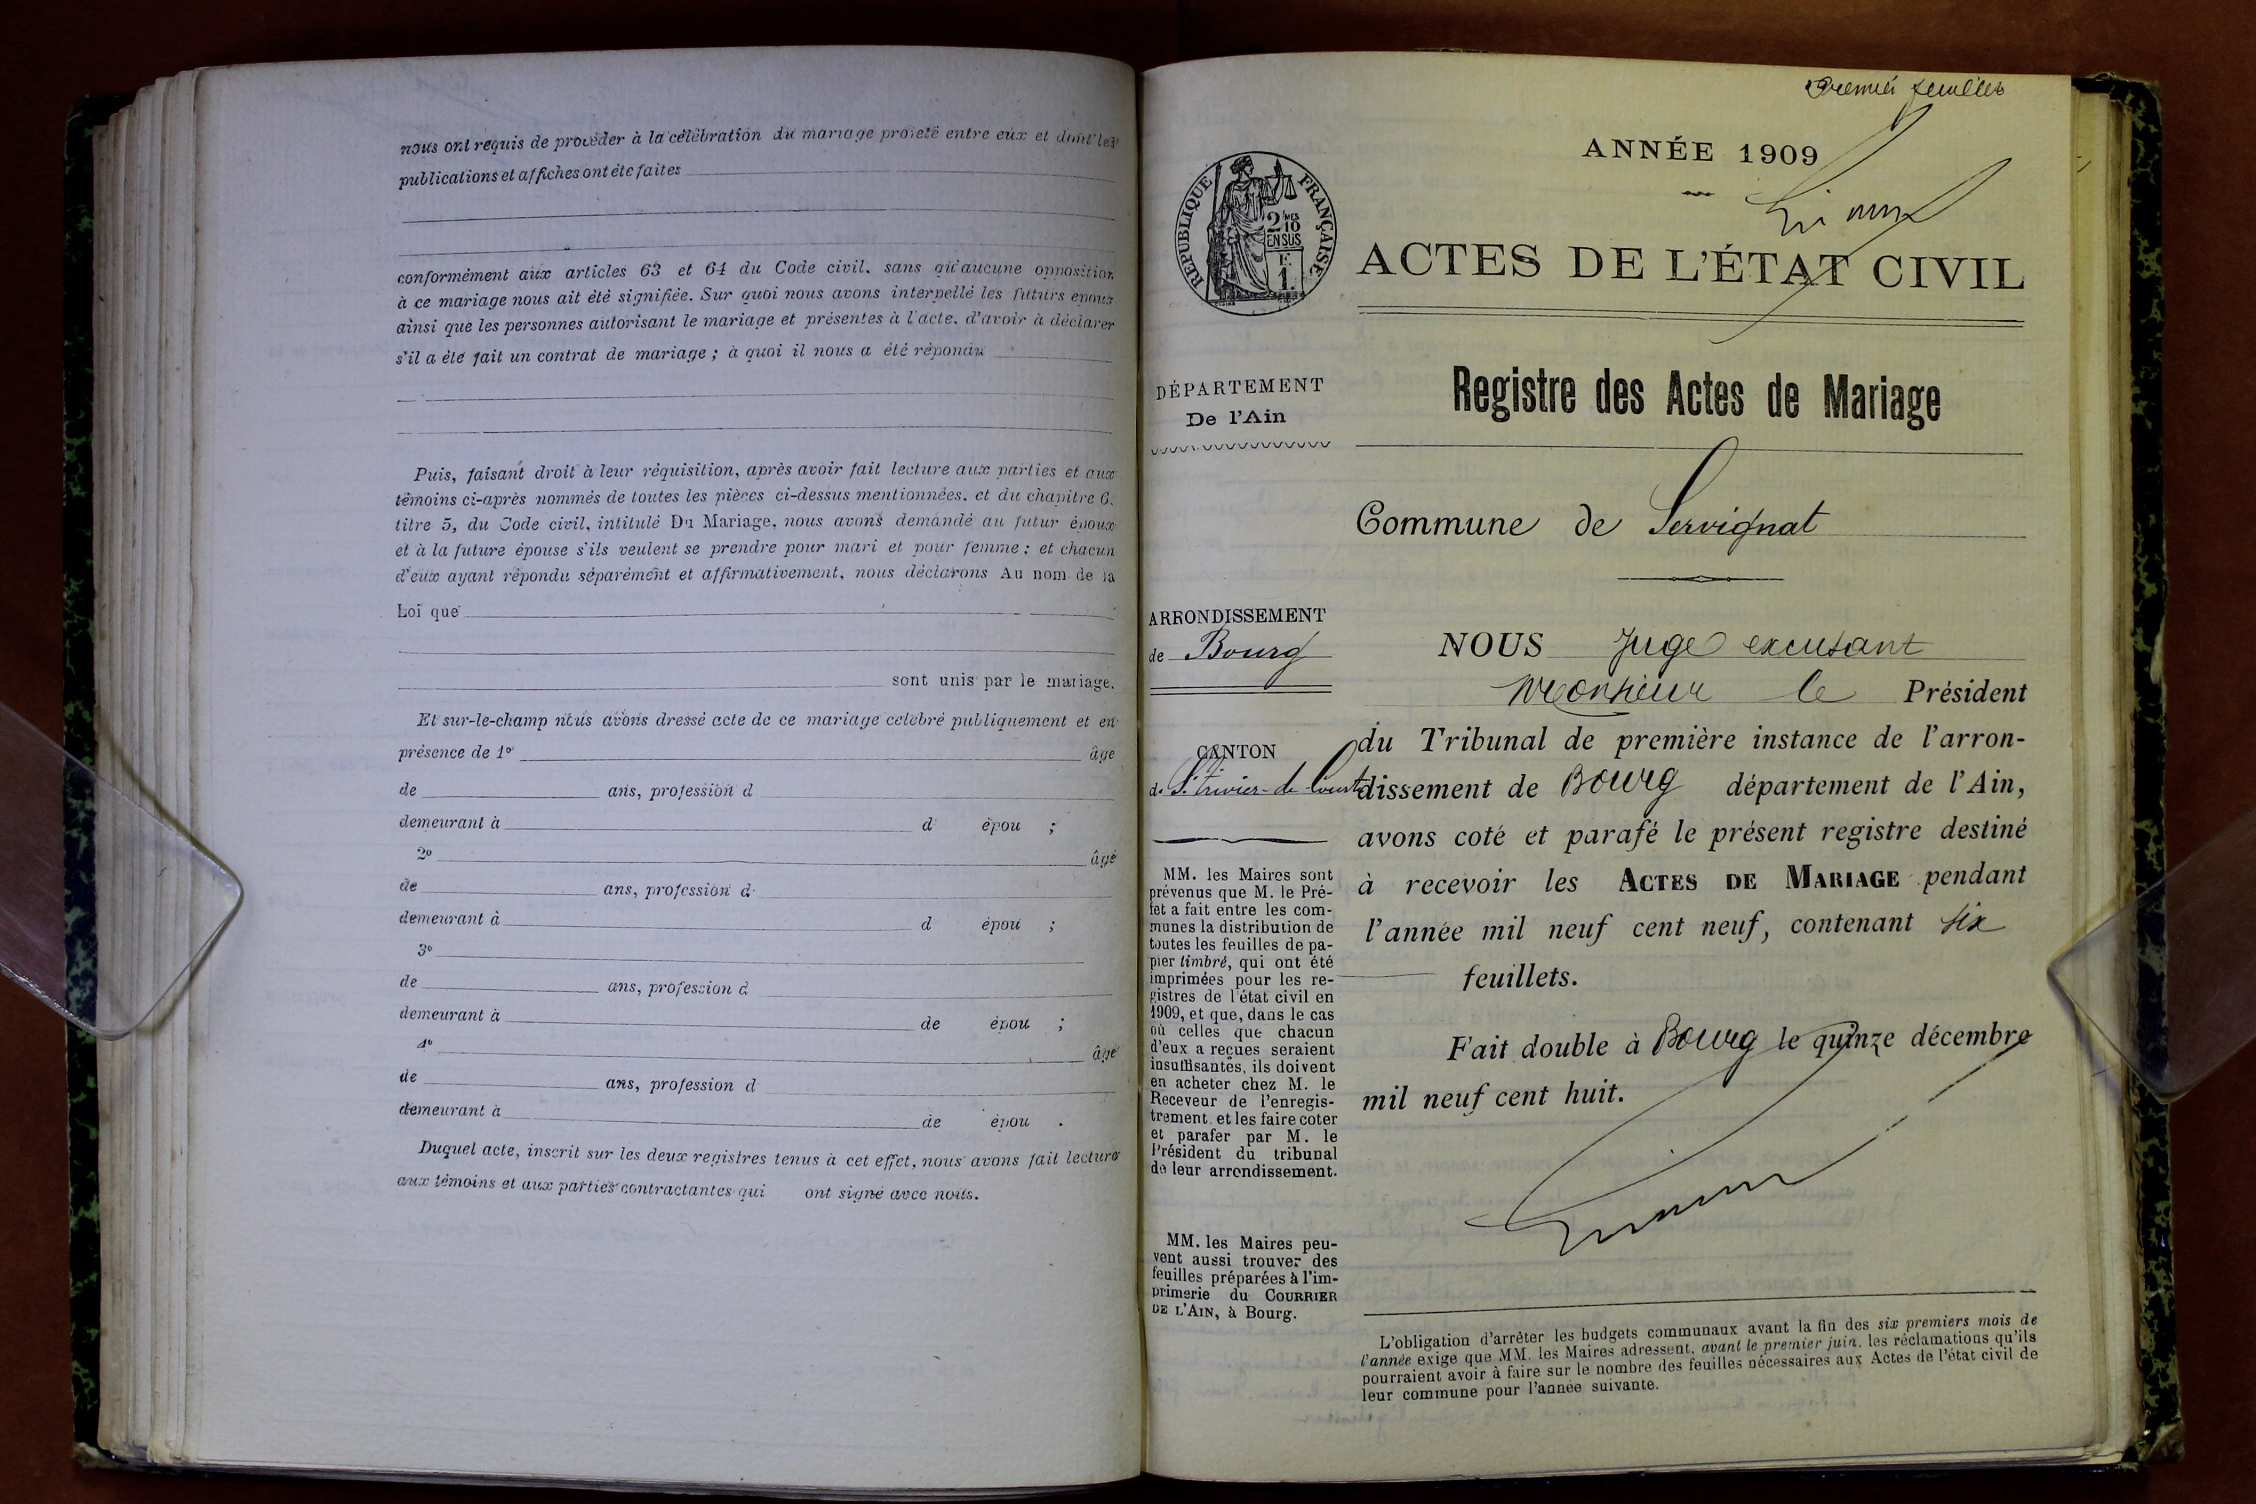 nous ont requis de procéder à la célébration du mariage projeté entre eux et dont les
publications et affiches ont été faites
conformément aux articles 63 et 64 du Code civil, sans qu'aucune opposition
à ce mariage nous ait été signifiée. Sur quoi nous avons interpellé les futurs époux
ainsi que les personnes autorisant le mariage et présentes à l'acte, d'avoir à déclarer
s'il a été fait un contrat de mariage ; à quoi il nous a été répondu
Puis, faisant droit à leur réquisition, après avoir fait lecture aux parties et aux
témoins ci-après nommés de toutes les pièces ci-dessus mentionnées, et du chapitre 6,
titre 5, du Code civil, intitulé Du Mariage, nous avons demandé au futur époux
et à la future épouse s'ils veulent se prendre pour mari et pour femme ; et chacun
d'eux ayant répondu séparément et affirmativement, nous déclarons Au nom de la
Loi que
sont unis par le mariage.
Et sur-le-champ nous avons dressé acte de ce mariage célébré publiquement et en
présence de 1° âgé
de ans, profession d
demeurant à d épou ;
2° âgé
de ans, profession d
demeurant à d épou ;
3°
de ans, profession d
demeurant à de épou ;
4° âgé
de ans, profession d
demeurant à de épou .
Duquel acte, inscrit sur les deux registres tenus à cet effet, nous avons fait lecture
aux témoins et aux parties contractantes qui ont signé avec nous.
Premier feuillets
ANNÉE 1909
RÉPUBLIQUE FRANÇAISE
2 /MES
10
EN SUS
F.
1.
ACTES DE L'ÉTAT CIVIL
Registre des Actes de Mariage
DÉPARTEMENT
De l'Ain
Commune de Servignat
ARRONDISSEMENT
de Bourg
CANTON
de St. Trivier-de-Courtes
MM. les Maires sont
prévenus que M. le Pré-
fet a fait entre les com-
munes la distribution de
toutes les feuilles de pa-
pier timbré, qui ont été
imprimées pour les re-
gistres de l'état civil en
1909, et que, dans le cas
où celles que chacun
d'eux a reçues seraient
insuffisantes, ils doivent
en acheter chez M. le
Receveur de l'enregis-
trement et les faire coter
et parafer par M. le
Président du tribunal
de leur arrondissement.
MM. les Maires peu-
vent aussi trouver des
feuilles préparées à l'im-
primerie du COURRIER
DE L'AIN, à Bourg.
NOUS Juge excusant
Monsieur le Président
du Tribunal de première instance de l'arron-
dissement de Bourg département de l'Ain,
avons coté et parafé le présent registre destiné
à recevoir les ACTES DE MARIAGE pendant
l'année mil neuf cent neuf, contenant six
feuillets.
Fait double à Bourg le quinze décembre
mil neuf cent huit.
L'obligation d'arrêter les budgets communaux avant la fin des six premiers mois de
l'année exige que MM. les Maires adressent, avant le premier juin, les réclamations qu'ils
pourraient avoir à faire sur le nombre des feuilles nécessaires aux Actes de l'état civil de
leur commune pour l'année suivante.